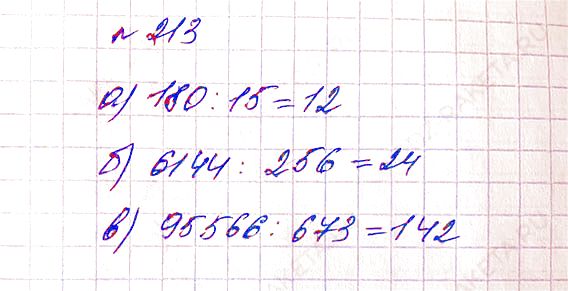 № 213
а) 180 : 15 = 12
б) 6144 : 256 = 24
в) 95566 : 673 = 142